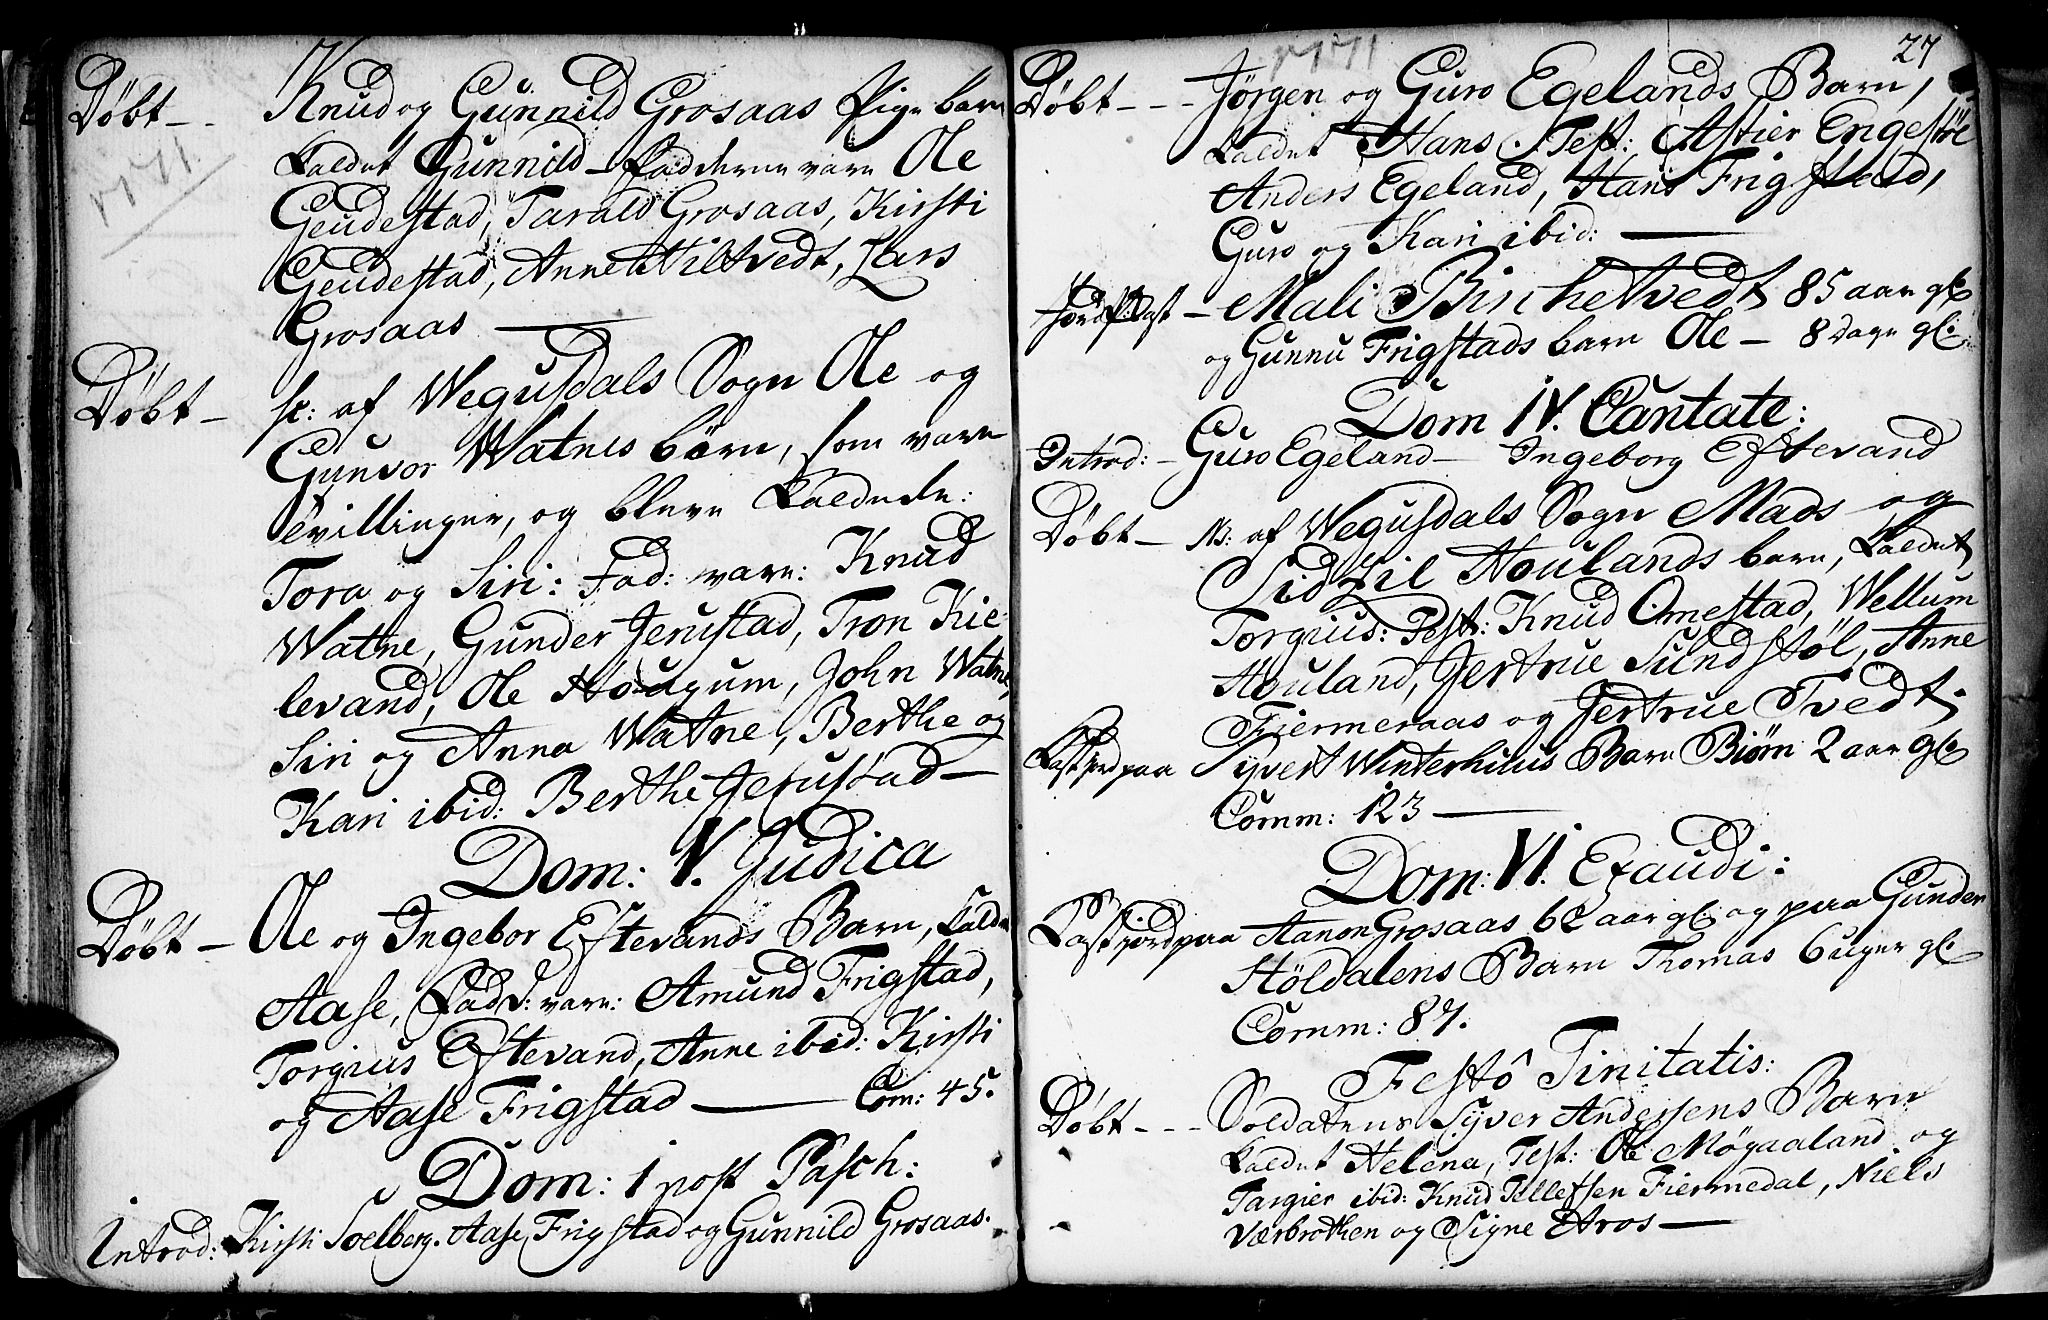 Døbt - - Knud og Gunnild Grosaas Pige barn
1771
kaldet Gunnild - Fadderne vare Ole
Geudestad, Tarald Grosaas, Kirsti
Geudestad, Anne Hiltvedt, Lars
Grosaas —
Døbt - sc: af Wegusdals Sogn Ole og
Gunvor Watnes börn, som vare
tvillinger, og bleve kaldede:
Tora og Siri: Fad: vare: Knud
Watne, Gunder Jerustad, Tron Kie-
levand, Ole Hougum, John Watne,
Siri og Anna Watne, Berthe og
Kari ibid: Berthe Jerustad —
Dom: V. Judica
Døbt - Ole og Ingebor Eftevands Barn, kaldet
Aase, Fadd: vare: Amund Frigstad,
Torgius Eftevand, Anne ibid: Kirsti
og Aase Frigstad — Com: 45.
Dom: 1 post Pasch:
Introd: Kirsti Soelberg. Aase Frigstad og Gunnild Grosaas.
1771
27
Døbt - - - Jørgen og Guro Egelands Barn,
kaldet Hans. Test: Astier Engestöl
Anders Egeland, Hans Frigstad,
Guro og Kari ibid: —
Jordf: Kast - Mali Birchetvedt 85 aar gl:
og Gunnu Frigstads barn Ole - 8 dage gl:
Dom IV. Cantate:
Introd: - Guro Egeland - Ingeborg Eftevand
Døbt - N: af Wegusdals Sogn Mads og
Sidzil Houlands barn, kaldet
Torgius: Test: Knud Omestad, Wellum
Houland, Jertrue Sundstøl, Anne
Fiermeraas og Jertrue Tvedt.
Kast jord paa Syvert Winterhuus Barn Biørn 2 aar gl:
Comm: 123 —
Dom: VI. Exaudi:
Kast jord paa Aanon Grosaas 62 aar gl: og paa Gunder
Stöldalens Barn Thomas 6 uger gl:
Comm: 87.
Festô Tinitatis:
Døbt - - - Soldatens Syver Andersens Barn
kaldet Helena, Test: Ole Møgaaland og
Targier ibid: Knud Tellefsen Fiermedal, Niels
Værbrotten og Signe Etros —